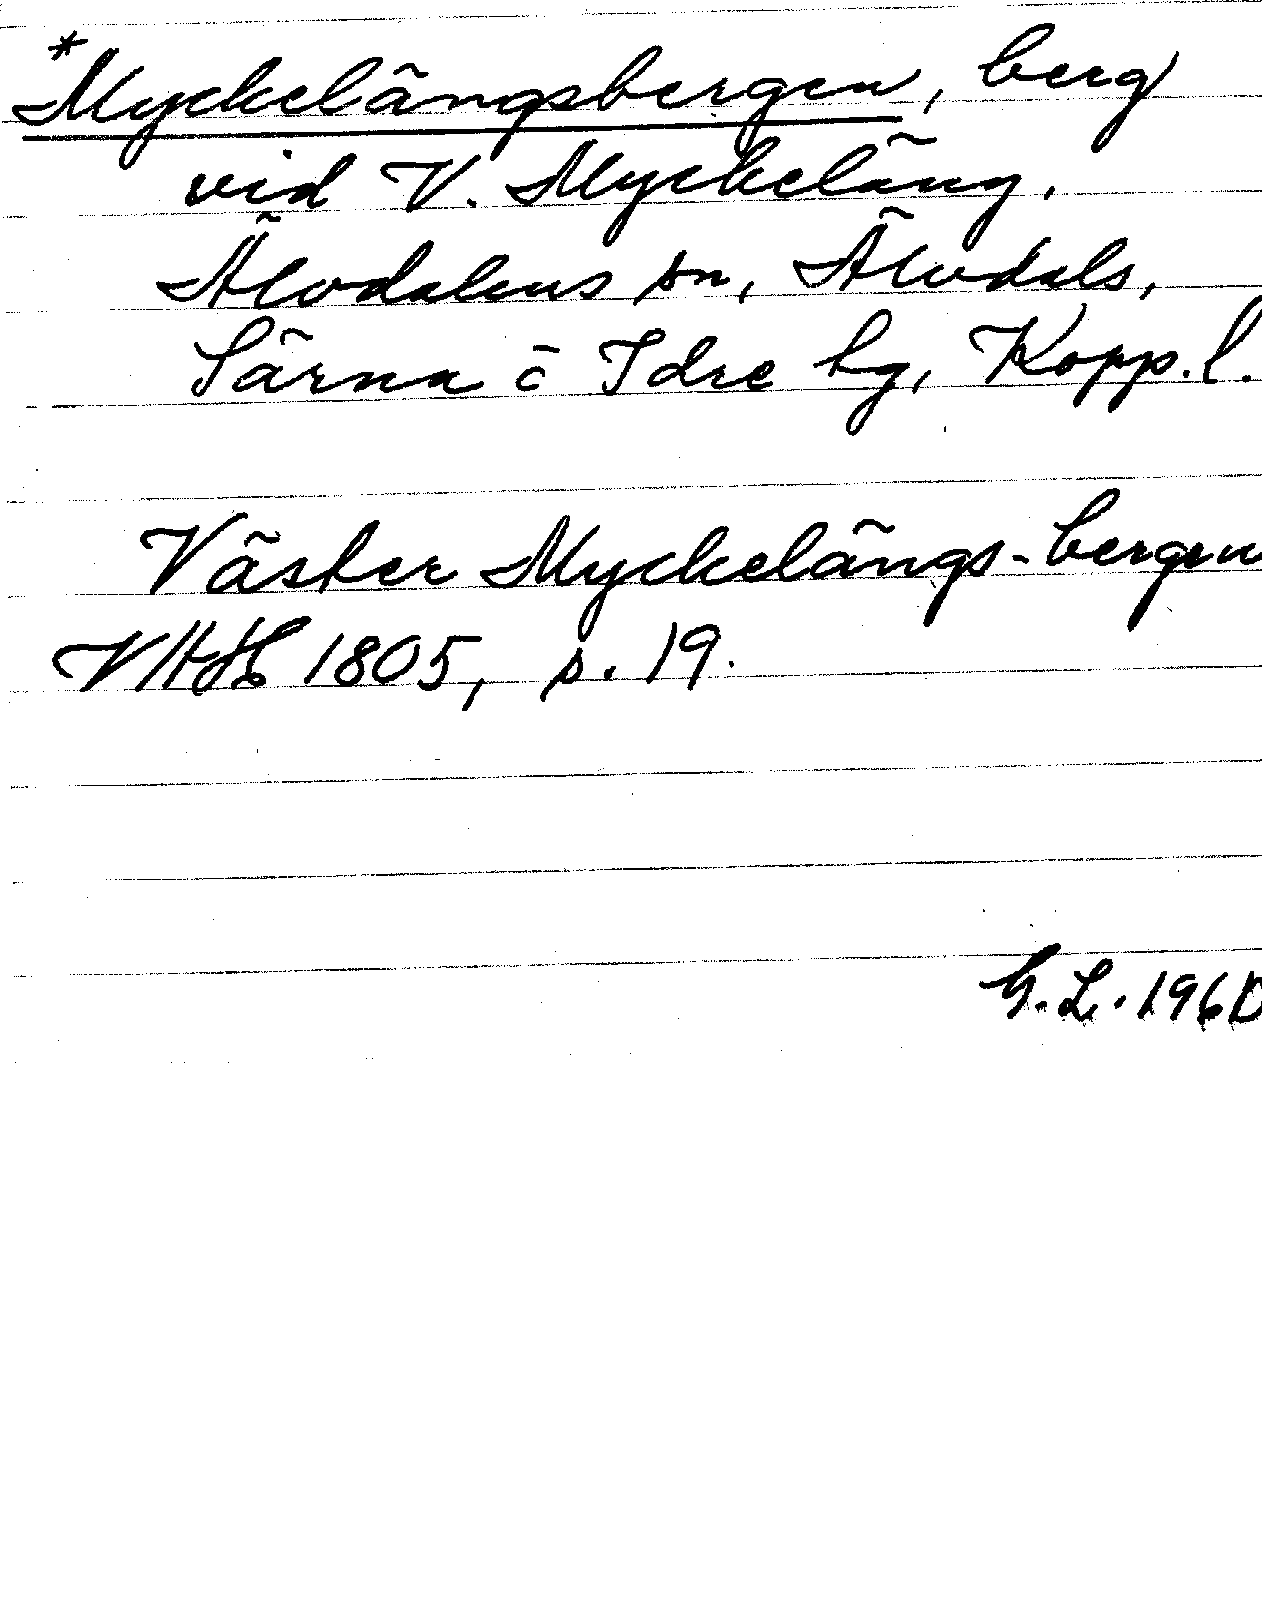 *Myckelängsbergen, berg
vid V. Myckeläng,
Älvdalens sn, Älvdals,
Särna o Idre tg, Kopp. l.
Väster Myckelängs-bergen
1805, s. 19.
G.L. 1960